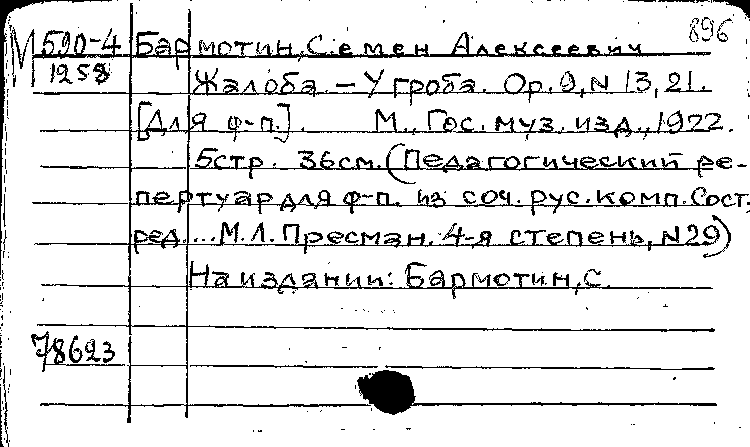 896
М 590-4 Бармотин, Семен Алексеевич
1258 Жалоба. – У гроба. Op. 9, N 13, 21.
[Для ф-п.]. М., Гос. муз. изд., 1922.
5стр. 36см. (Педагогический ре-
пертуар для ф-п. из соч. рус. комп. Сост.,
ред. ... М.Л. Пресман. 4-я степень, N29)
На издании: Бармотин, С.
78623